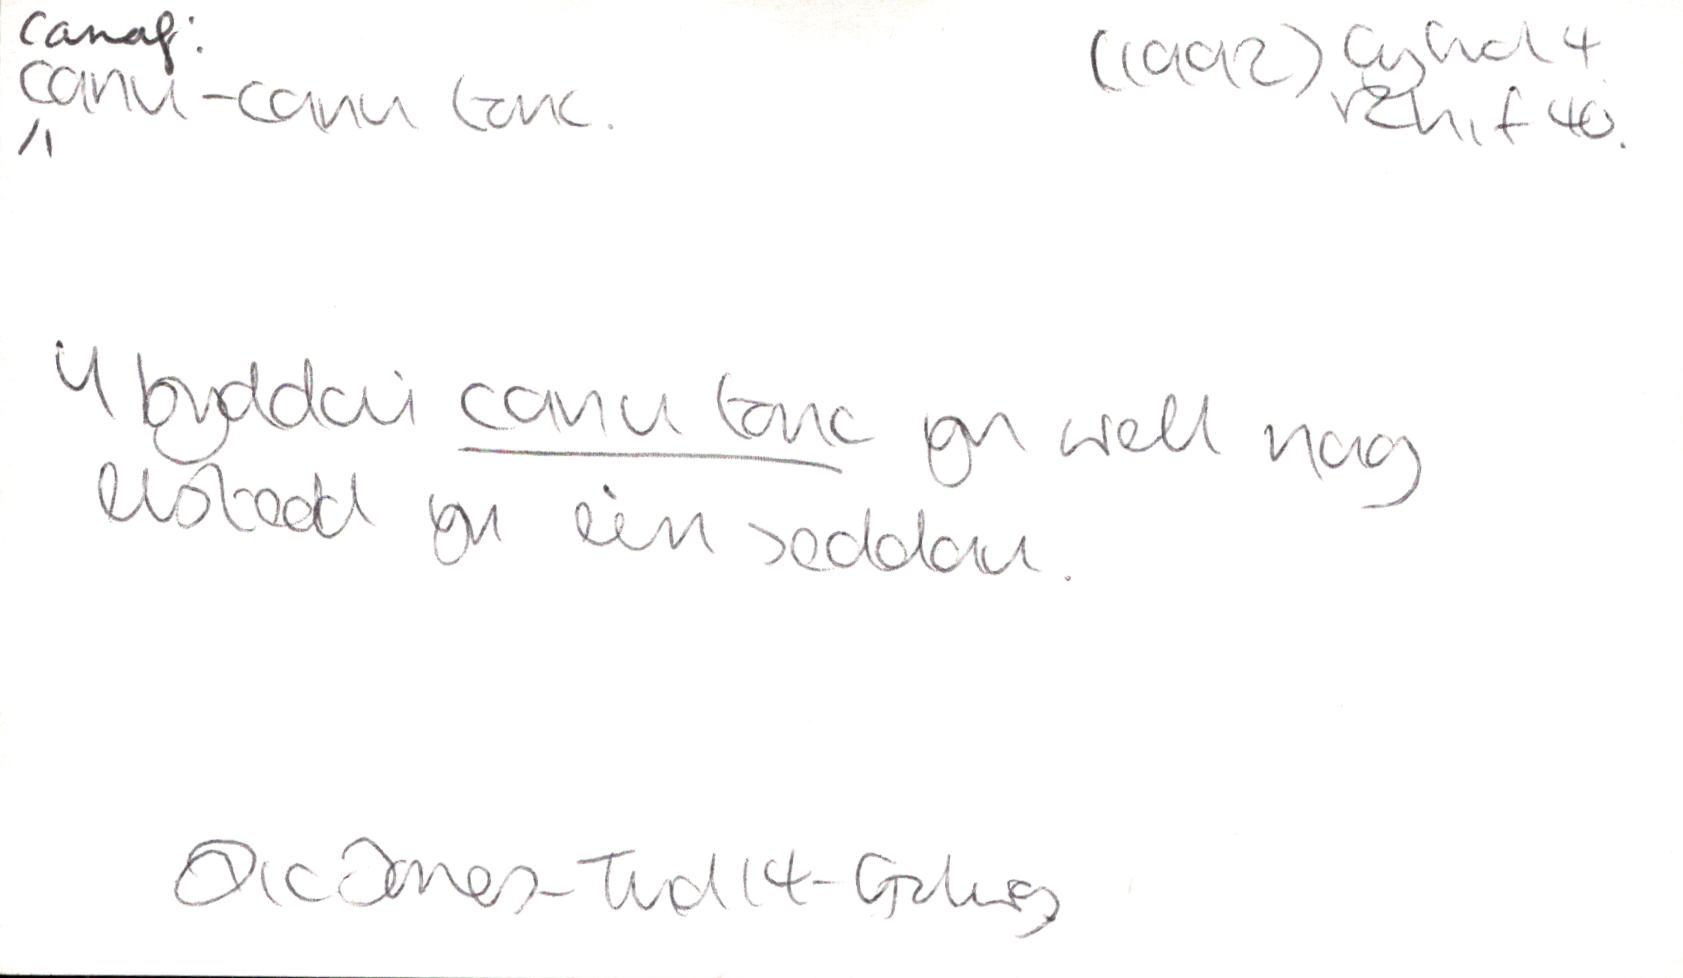 canaf:
canu-canu tanc.
(1992) Cyfrol 4
rhif 40.
y byddai canu tanc yn well nag
eistedd yn ein seddau.
Dic Jones - Tud 14 - Golwg